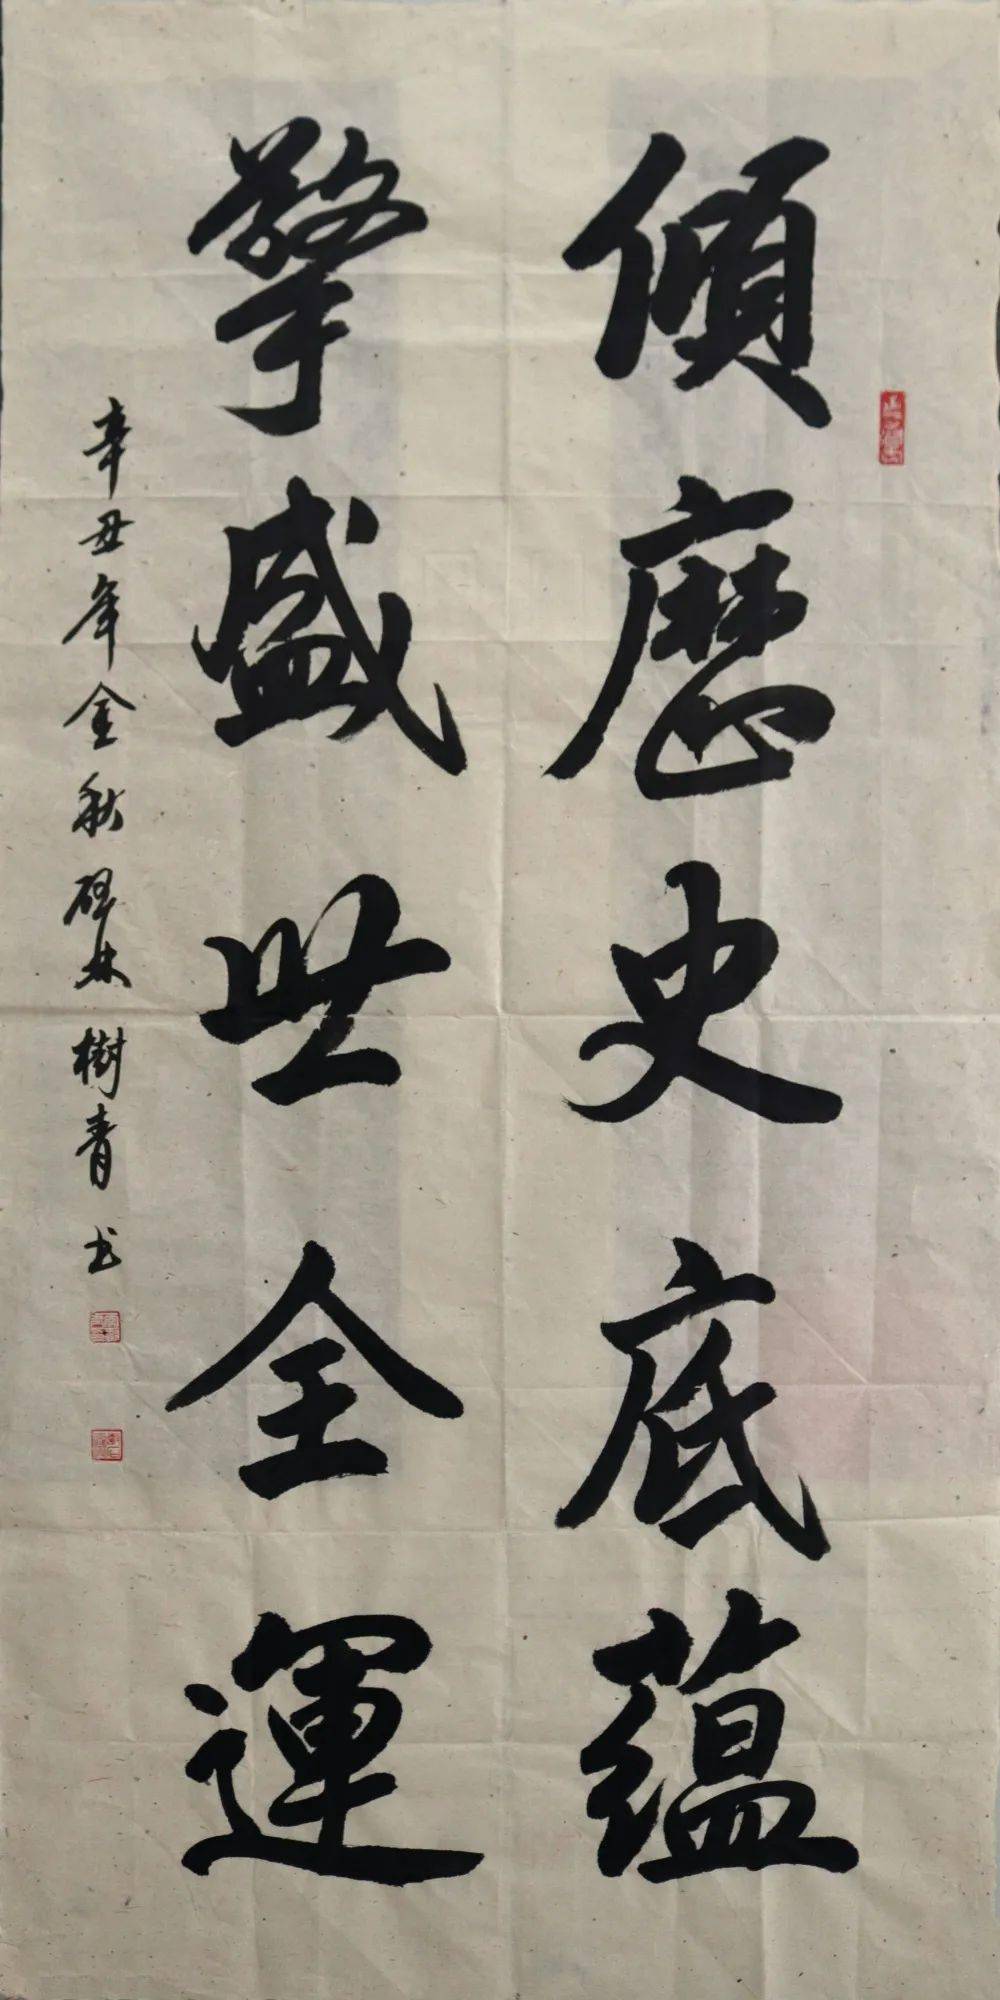 傾歷史底蘊
擎盛世全運
辛丑年金秋碑林樹青书